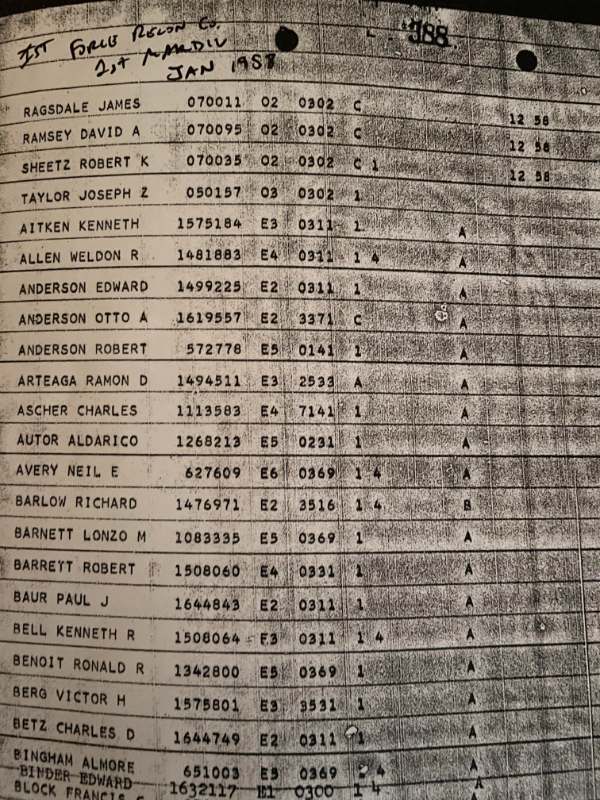 388
1ST FORCE RECON CO.
1st MARDIV
JAN 1958
RAGSDALE JAMES 070011 O2 0302 C 12 58
RAMSEY DAVID A 070095 O2 0302 C 12 58
SHEETZ ROBERT K 070035 O2 0302 C 1 12 58
TAYLOR JOSEPH Z 050157 O3 0302 1
AITKEN KENNETH 1575184 E3 0311 1 A
ALLEN WELDON R 1481883 E4 0311 1 4 A
ANDERSON EDWARD 1499225 E2 0311 1 A
ANDERSON OTTO A 1619557 E2 3371 C A
ANDERSON ROBERT 572778 E5 0141 1 A
ARTEAGA RAMON D 1494511 E3 2533 A A
ASCHER CHARLES 1113583 E4 7141 1 A
AUTOR ALDARICO 1268213 E5 0231 1 A
AVERY NEIL E 627609 E6 0369 1 4 A
BARLOW RICHARD 1476971 E2 3516 1 4 B
BARNETT LONZO M 1083335 E5 0369 1 A
BARRETT ROBERT 1508060 E4 0331 1 A
BAUR PAUL J 1644843 E2 0311 1 A
BELL KENNETH R 1508064 E3 0311 1 4 A
BENOIT RONALD R 1342800 E5 0369 1 A
BERG VICTOR H 1575801 E3 3531 1 A
BETZ CHARLES D 1644749 E2 0311 1 A
BINGHAM ALMORE 651003 E5 0369 4 A
BINDER EDWARD 1632117 E1 0300 1 4 A
BLOCK FRANCIS